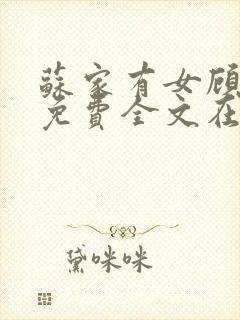 蘇家有女顾
免費全文在
黛咪咪